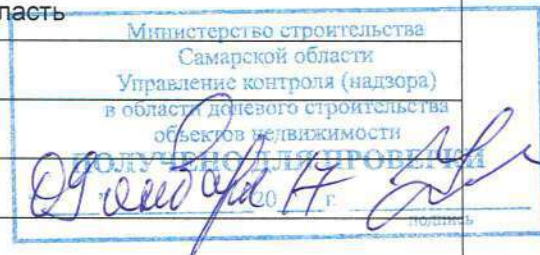 ласть
Министерство строительства
Самарской области
Управление контроля (надзора)
в области долевого строительства
объектов недвижимости
ПОЛУЧЕНО ДЛЯ ПРОВЕРКИ
09 января 2017 г.
подпись